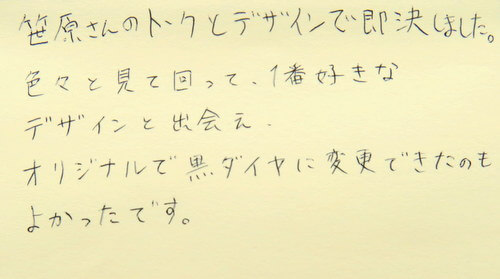 笹原さんのトークとデザインで即決しました。
色々と見て回って、1番好きな
デザインと出会え、
オリジナルで黒ダイヤに変更できたのも
よかったです。